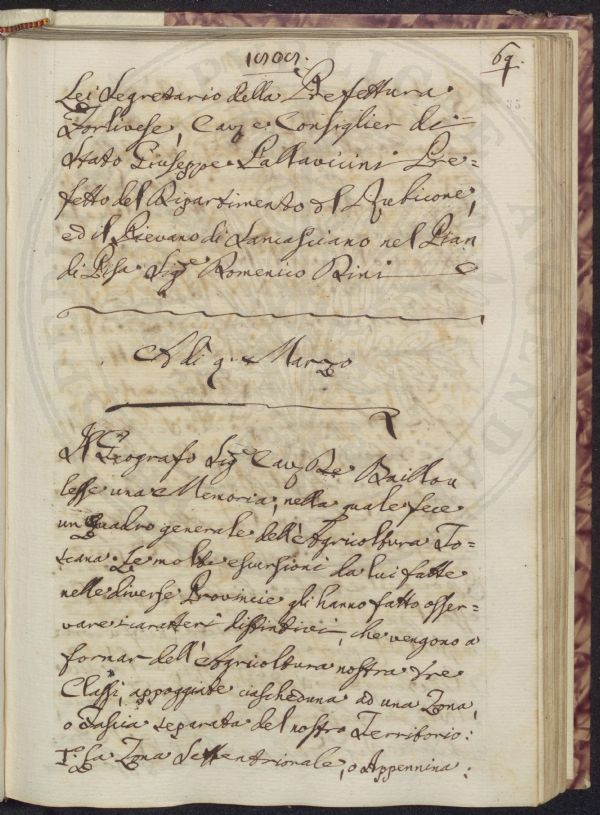 69.
35
Lei Segretario della Prefettura
Forlivese, Cav.e Consiglier di
Stato Giuseppe Pallavicini Pre=
fetto del Ripartimento del Rubicone,
ed il Pievano di Lancasciano nel Pian
di Pisa Sig.e Romenico Rini
A di 9. Marzo
Il Geografo Sig.e Cav. Baillou
lesse una Memoria, nella quale fece
un Quadro generale dell'Agricoltura To=
scana. Le molte escursioni da lui fatte
nelle diverse Provincie gli hanno fatto osser=
vare i caratteri distintivi, che vengono a
formar dell'Agricoltura nostra tre
Classi, appoggiate ciascheduna ad una Zona,
o Fascia separata del nostro Territorio:
1.a La Zona Settentrionale, o Appennina: